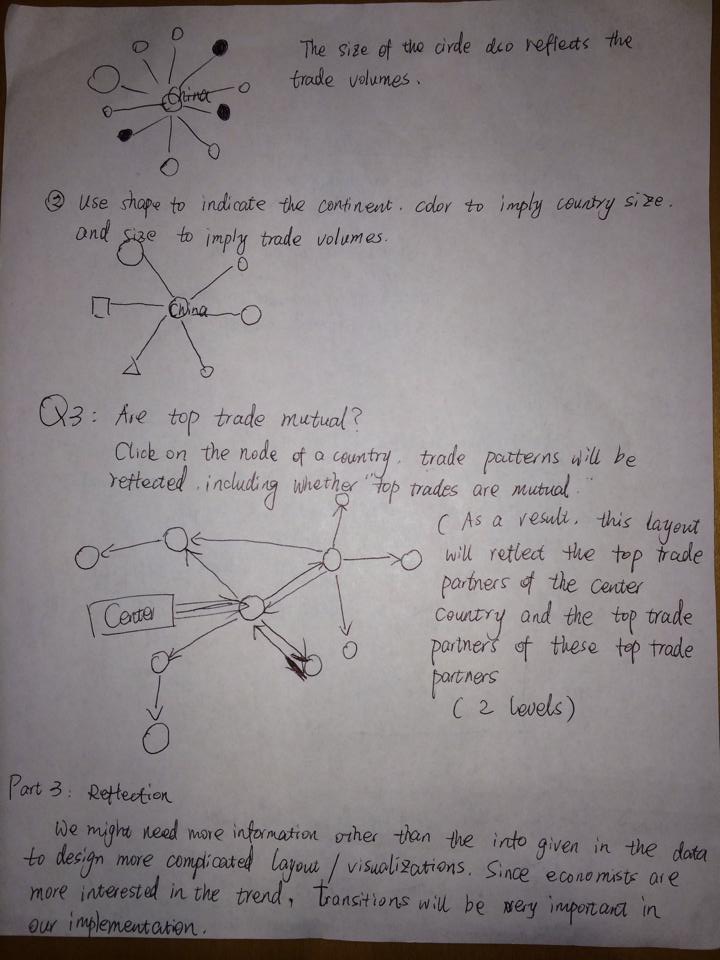 The size of the circle also reflects the
trade volumes.
China
② Use shape to indicate the continent. color to imply country size.
and size to imply trade volumes.
China
Q3: Are top trade mutual?
Click on the node of a country. trade patterns will be
reflected. including whether "top trades are mutual."
( As a result, this layout
will reflect the top trade
partners of the center
country and the top trade
partners of these top trade
partners
( 2 levels)
Center
Part 3: Reflection
We might need more information other than the info given in the data
to design more complicated layout / visualizations. Since economists are
more interested in the trend, transitions will be very important in
our implementation.